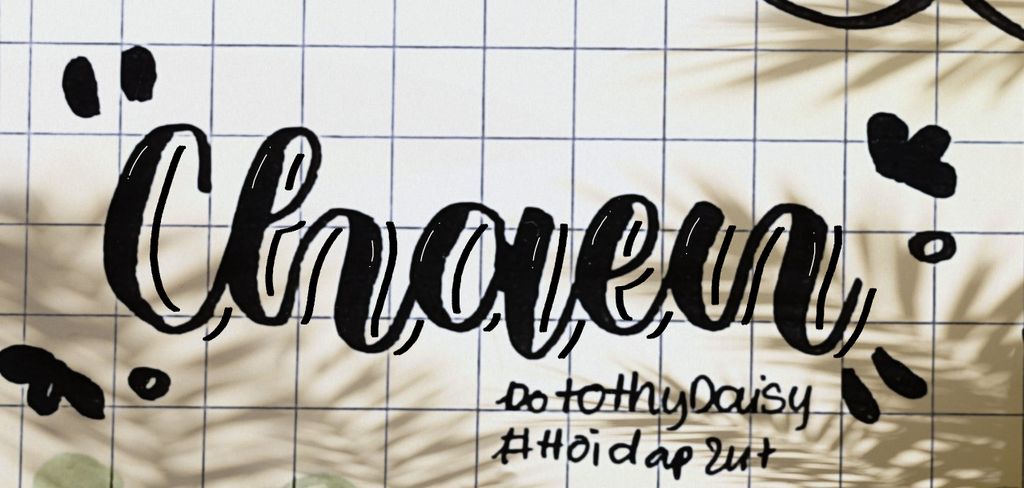 Chaen
DotothyDaisy
#Hoidap2ut